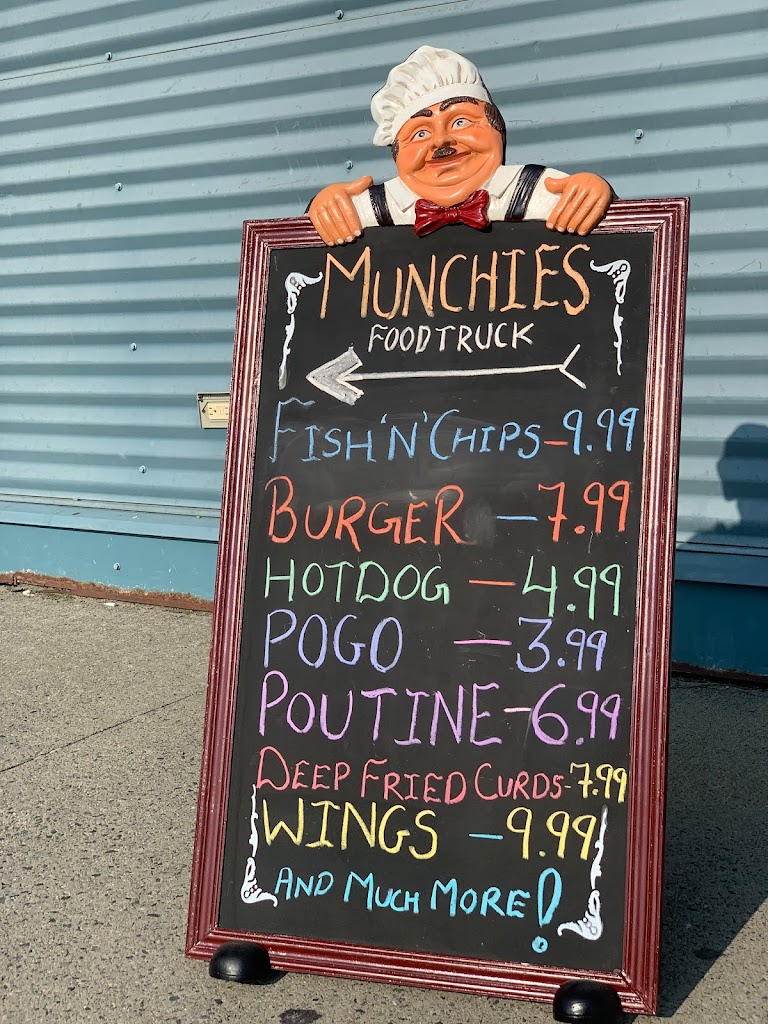 MUNCHIES
FOOD TRUCK
FISH 'N' CHIPS - 9.99
BURGER - 7.99
HOTDOG - 4.99
POGO - 3.99
POUTINE - 6.99
DEEP FRIED CURDS - 7.99
WINGS - 9.99
AND MUCH MORE!